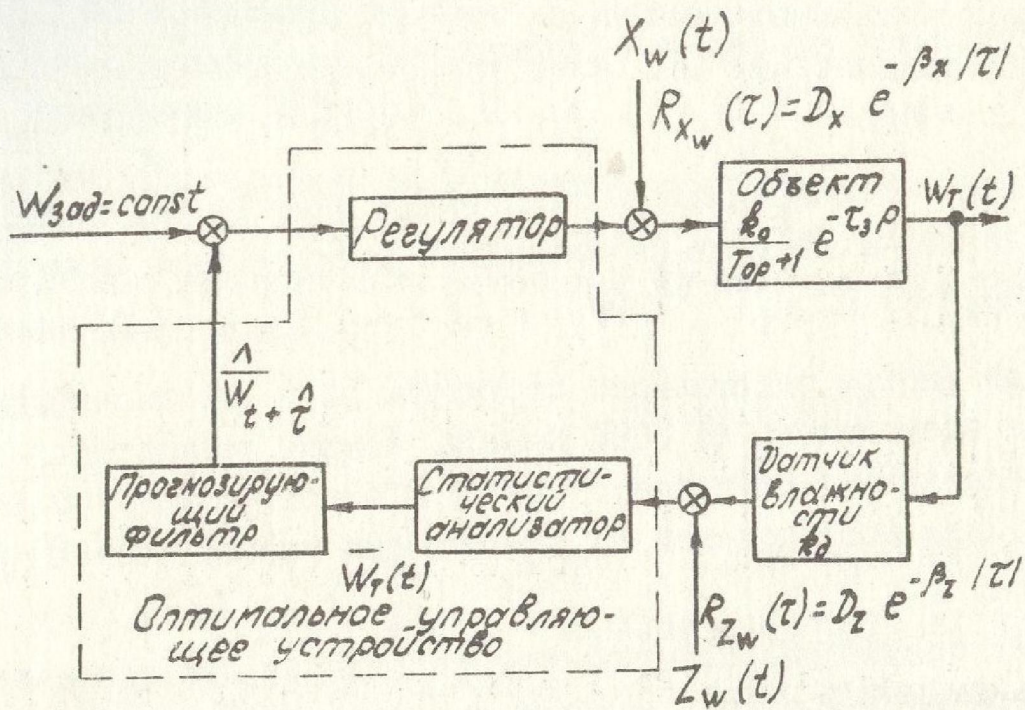 X_w(t)
R_{X_w}(τ)=D_x e^{-β_x|τ|}
W_зад=const
Регулятор
Объект
k_о/(T_оp+1) e^{-τ_з p}
W_T(t)
Ŵ̄_{t+τ̂}
Прогнозирую-
щий
фильтр
Статисти-
ческий
анализатор
Датчик
влажно-
сти
k_д
W̄_T(t)
Оптимальное управляю-
щее устройство
R_{Z_w}(τ)=D_z e^{-β_z|τ|}
Z_w(t)